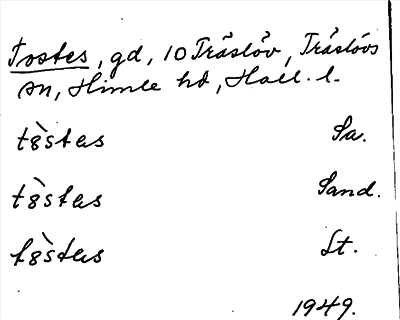 Tostes, gd, 10 Träslöv, Träslövs
sn, Himle hd, Hall. l.
tòstas Sa.
tòstas Sand.
tòstas St.
1949.